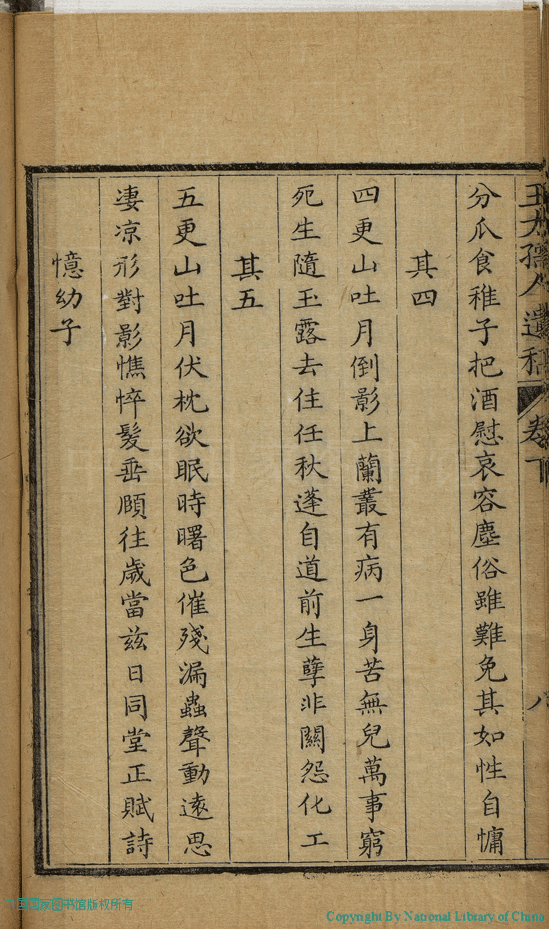 分瓜食稚子把酒慰哀容塵俗雖難免其如性自慵
其四
四更山吐月倒影上蘭叢有病一身苦無兒萬事窮
死生隨玉露去住任秋蓬自道前生孽非關怨化工
其五
五更山吐月伏枕欲眠時曙色催殘漏蟲聲動遠思
凄凉形對影憔悴髮垂頤往歲當兹日同堂正賦詩
憶幼子
中国国家图书馆版权所有
Copyright By National Library of China